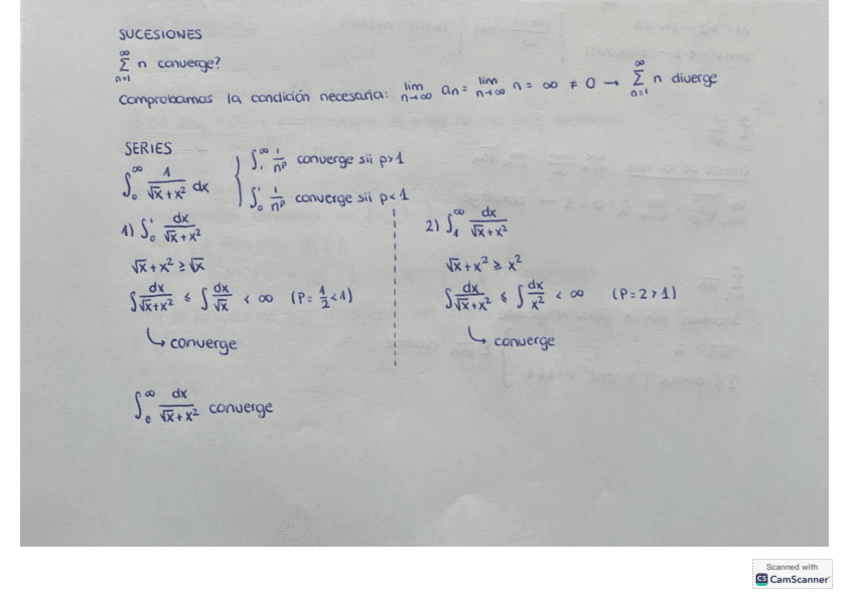 SUCESIONES
∞
Σ n converge?
n=1
Comprobamos la condición necesaria: lim n→∞ an = lim n→∞ n = ∞ ≠ 0 → ∞ Σ n=1 n diverge
SERIES
∫₀^∞ 1/(√x + x²) dx { ∫₁^∞ 1/n^p converge sii p>1
∫₀^1 1/n^p converge sii p<1
1) ∫₀^1 dx/(√x + x²)
√x + x² ≥ √x
∫ dx/(√x+x²) ≤ ∫ dx/√x < ∞ (P = 1/2 < 1)
↳ converge
2) ∫₁^∞ dx/(√x + x²)
√x + x² ≥ x²
∫ dx/(√x+x²) ≤ ∫ dx/x² < ∞ (P = 2 > 1)
↳ converge
∫₀^∞ dx/(√x + x²) converge
Scanned with
CS CamScanner